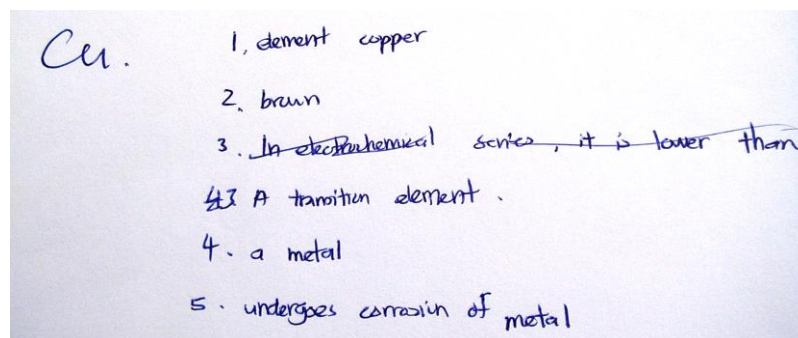 Cu.
1, element copper
2. brown
3. In electrochemical series, it is lower than
3 A transition element.
4. a metal
5. undergoes corrosion of metal